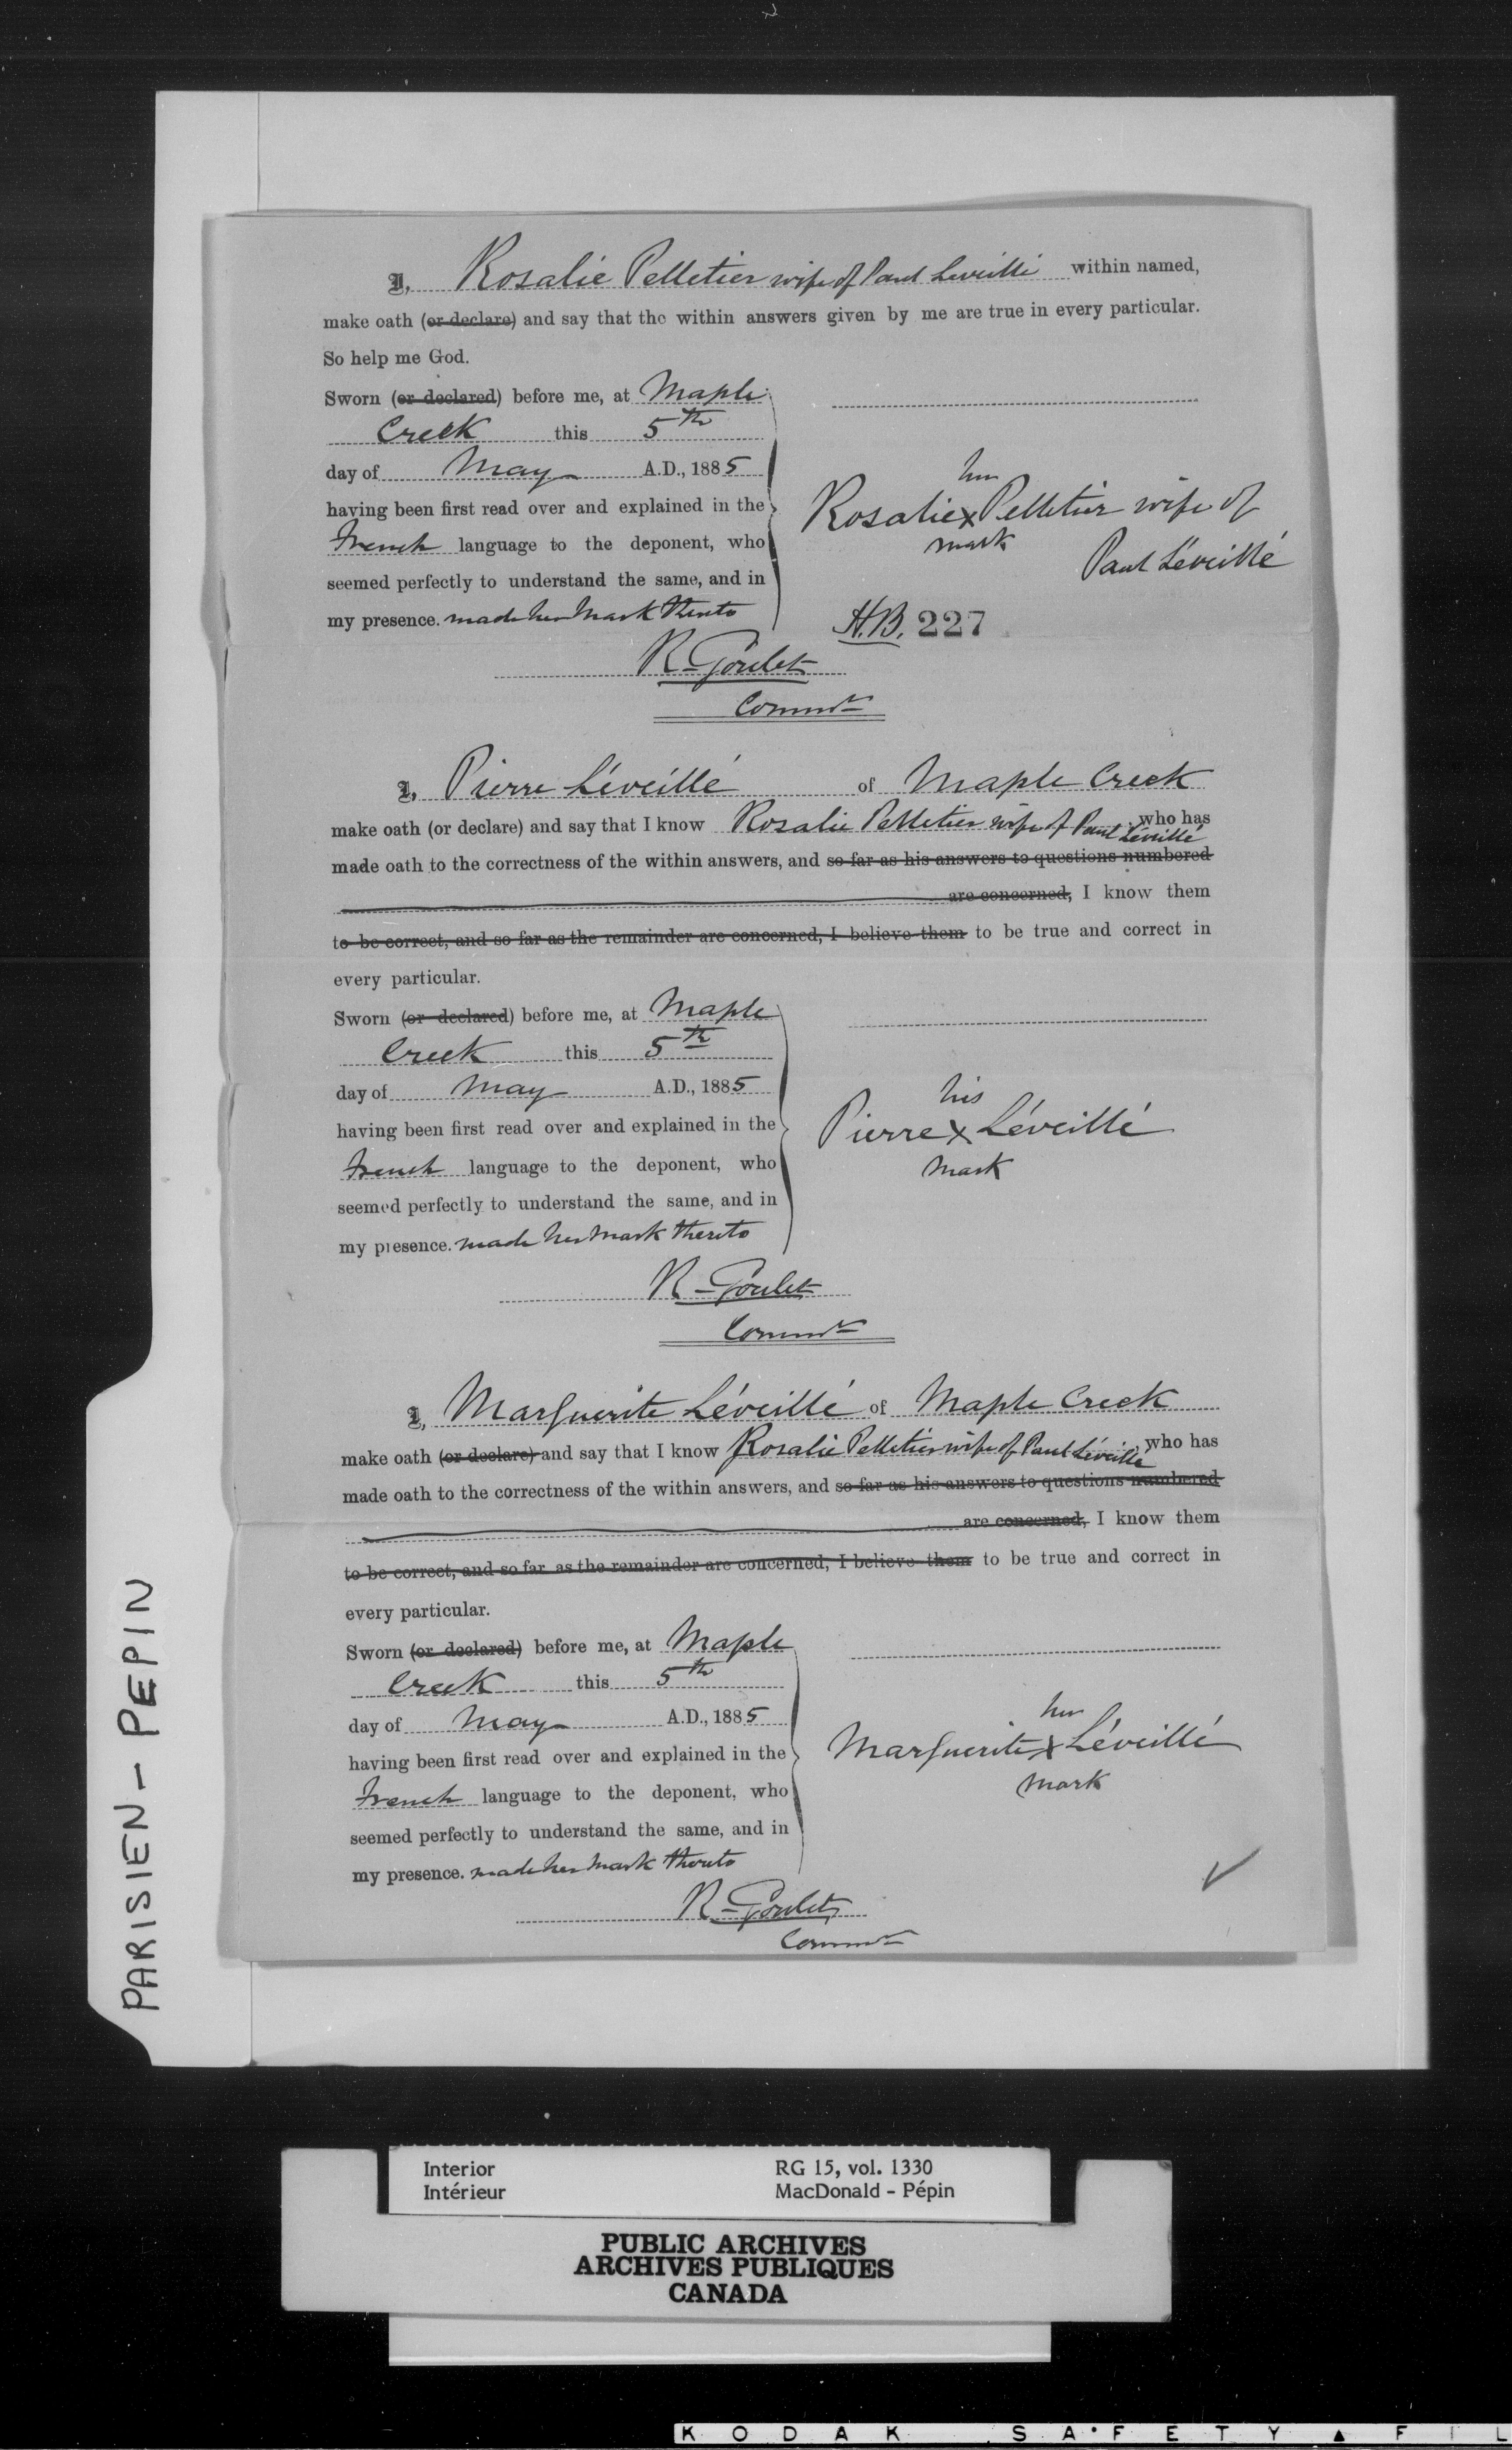 I, Rosalie Pelletier wife of Paul Leveillé within named,
make oath (or declare) and say that the within answers given by me are true in every particular.
So help me God.
Sworn (or declared) before me, at Maple
Creek this 5th
day of May A.D., 1885
having been first read over and explained in the
French language to the deponent, who
seemed perfectly to understand the same, and in
my presence. made her mark thereto
her
Rosalie x Pelletier wife of
mark
Paul Léveillé
H.B. 227
R. Goulet
Commr
I, Pierre Léveillé of Maple Creek
make oath (or declare) and say that I know Rosalie Pelletier wife of Paul Léveillé who has
made oath to the correctness of the within answers, and so far as his answers to questions numbered
are concerned, I know them
to be correct, and so far as the remainder are concerned, I believe them to be true and correct in
every particular.
Sworn (or declared) before me, at Maple
Creek this 5th
day of May A.D., 1885
having been first read over and explained in the
French language to the deponent, who
seemed perfectly to understand the same, and in
my presence. made her mark thereto
his
Pierre x Léveillé
mark
R. Goulet
Commr
I, Marguerite Léveillé of Maple Creek
make oath (or declare) and say that I know Rosalie Pelletier wife of Paul Léveillé, who has
made oath to the correctness of the within answers, and so far as his answers to questions numbered
are concerned, I know them
to be correct, and so far as the remainder are concerned, I believe them to be true and correct in
every particular.
Sworn (or declared) before me, at Maple
Creek this 5th
day of May A.D., 1885
having been first read over and explained in the
French language to the deponent, who
seemed perfectly to understand the same, and in
my presence. made her mark thereto
her
Marguerite x Léveillé
mark
R. Goulet
Commr
PARISIEN - PEPIN
Interior RG 15, vol. 1330
Intérieur MacDonald - Pépin
PUBLIC ARCHIVES
ARCHIVES PUBLIQUES
CANADA
KODAK SAFETY ▲ FIL